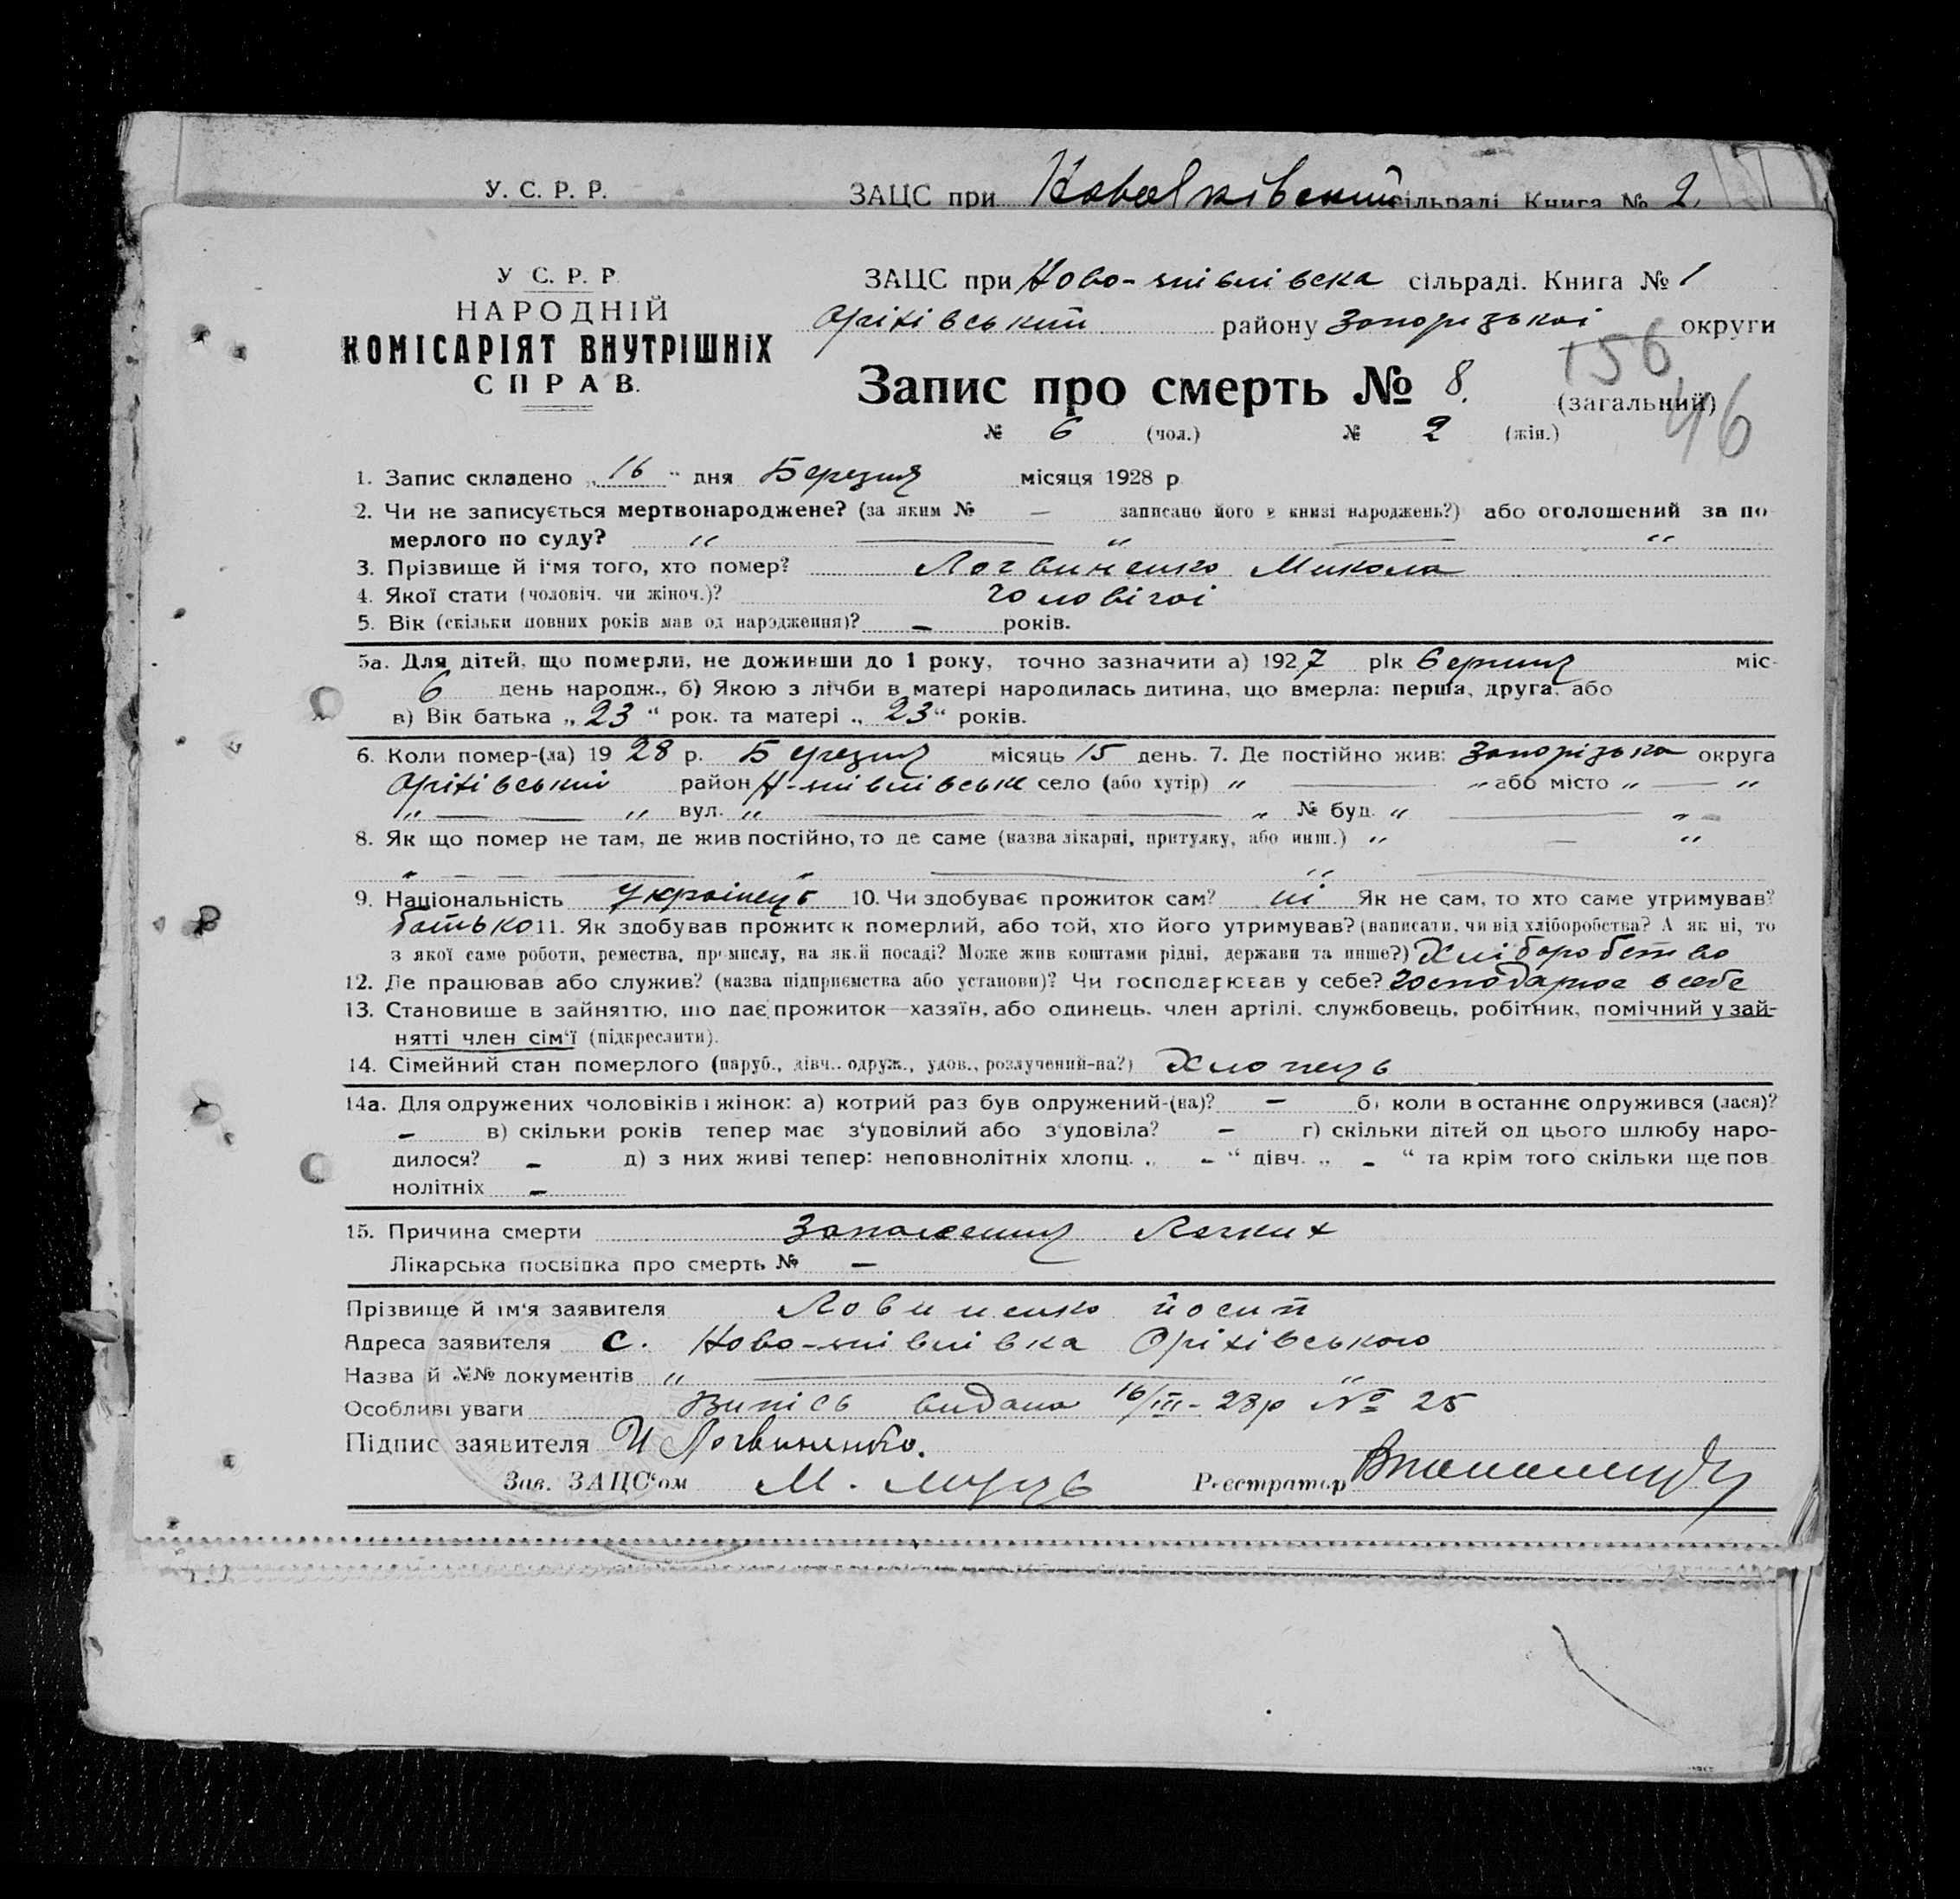 У. С. Р. Р.
ЗАЦС при сільраді Книга № 2
У С. Р. Р
НАРОДНІЙ
КОМІСАРІЯТ ВНУТРІШНІХ
СПРАВ.
ЗАЦС при Ново- сільраді. Книга № 1
Оріхівський району Запорізької округи
156
Запис про смерть № 8.
(загальний)
46
№ 6 (чол.) № 2 (жін.)
1. Запис складено „ 16 “ дня Березня місяця 1928 р
2. Чи не записується мертвонароджене? (за яким № — записано його в книзі народжень?) або оголошений за по
мерлого по суду? „ — „ — „
3. Прізвище й і'мя того, хто помер? Логвиненко Микола
4. Якої стати (чоловіч. чи жіноч.)? чоловічої
5. Вік (скільки повних років мав од народження)? – років.
5а. Для дітей, що померли, не доживши до 1 року, точно зазначити а) 1927 рік міс-
6 день народж., б) Якою з лічби в матері народилась дитина, що вмерла: перша, друга, або
в) Вік батька „ 23 “ рок. та матері „ 23 “ років.
6. Коли помер-(ла) 1928 р. Березня місяць 15 день. 7. Де постійно жив: Запорізька округа
Оріхівський район село (або хутір) „ — „ або місто „ — „
„ — — „ вул. „ — — — „ № буд. „ — „
8. Як що помер не там, де жив постійно, то де саме (назва лікарні, притулку, або инш.) „ — „
„ — — — „ — „ —
9. Національність Українець 10. Чи здобуває прожиток сам? ні Як не сам, то хто саме утримував?
батько 11. Як здобував прожиток померлий, або той, хто його утримував? (написати, чи від хліборобства? А як ні, то
з якої саме роботи, ремества, промислу, на якій посаді? Може жив коштами рідні, держави та инше?) Хліборобство
12. Де працював або служив? (назва підприємства або установи)? Чи господарював у себе? господарює в себе
13. Становище в зайняттю, що дає прожиток—хазяїн, або одинець, член артілі, службовець, робітник, помічний у зай-
нятті член сім'ї (підкреслити).
14. Сімейний стан померлого (паруб., дівч.. одруж., удов., розлучений-на?) Хлопець
14а. Для одружених чоловіків і жінок: а) котрий раз був одружений-(на)? – б) коли в останнє одружився (лася)?
– в) скільки років тепер має з'удовілий або з'удовіла? – г) скільки дітей од цього шлюбу наро-
дилося? – д) з них живі тепер: неповнолітніх хлопц. „ – “ дівч. „ – “ та крім того скільки ще пов
нолітніх –
15. Причина смерти Запалення Легких
Лікарська посвідка про смерть № –
Прізвище й ім'я заявителя Ловиненко йосип
Адреса заявителя с. Ново- Оріхівського
Назва й №№ документів „ — „
Особливі уваги Випись видана 16/III-28р № 25
Підпис заявителя И Логвиненко.
Зав. ЗАЦС'ом М. Реєстратор